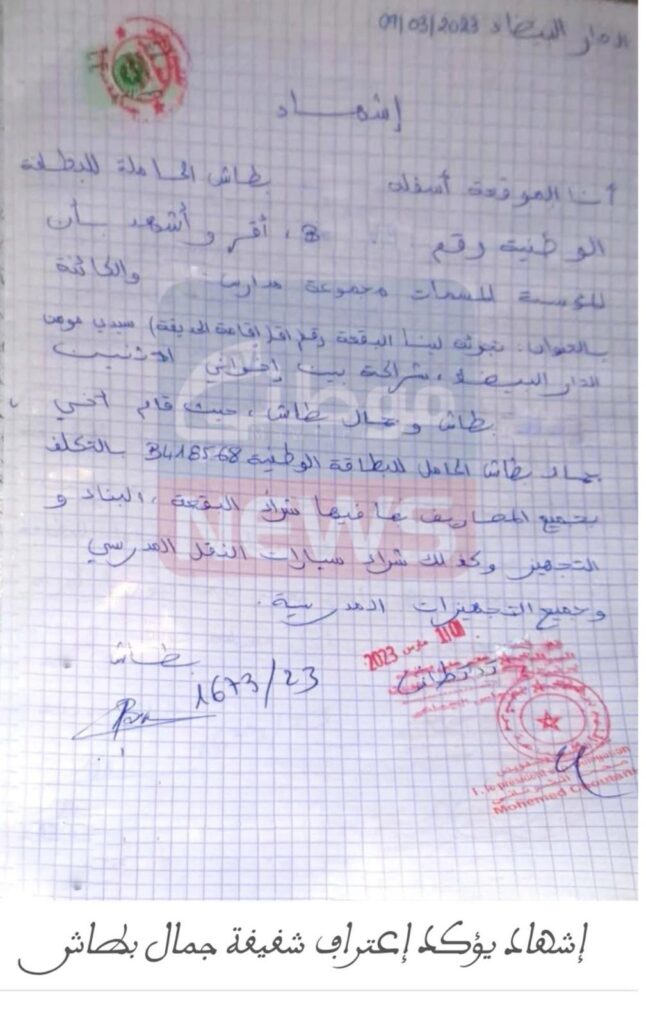 الدار البيضاء 09/03/2023
إشهاد
أنا الموقعة أسفله بطاش الحاملة للبطاقة
الوطنية رقم B ، أقر وأشهد بأن
المؤسسة المسمات مجموعة مدارس والكائنة
بالعنوان: لينا البقعة رقم (إقامة الحديقة) سيدي مومن
الدار البيضاء، شراكة بين إخواني الاثنين
بطاش وجمال بطاش، حيث قام أخي
جمال بطاش الحامل للبطاقة الوطنية B418568 بالتكلف
بجميع المصاريف بما فيها شراء البقعة، البناء و
التجهيز وكذلك شراء سيارات النقل المدرسي
وجميع التجهيزات المدرسية.
موطني
NEWS
بطاش
1673/23
10 مارس 2023
Mohamed
إشهاد يؤكد إعتراف شقيقة جمال بطاش